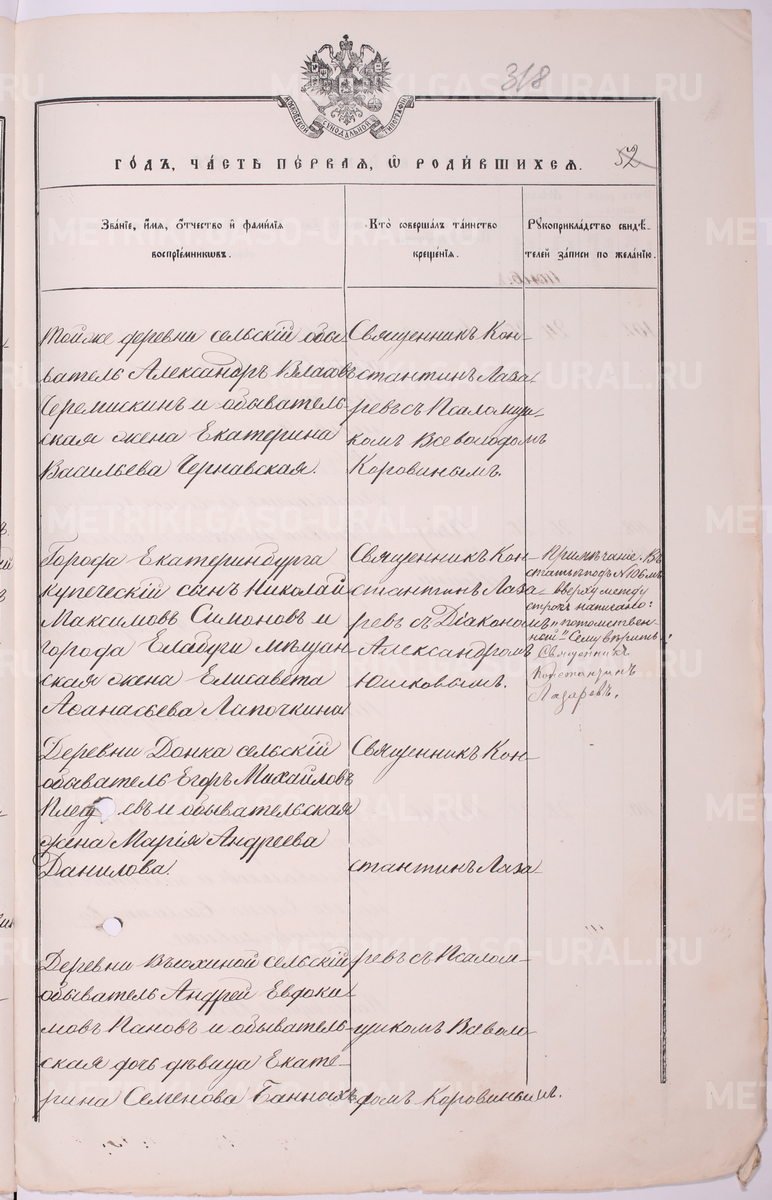 318
МОСКОВСКОЙ СѴНОДАЛЬНОЙ ТИПОГРАФІИ
ГО́ДЪ, ЧА́СТЬ ПЕ́РВАЯ, Ѡ҆ РОДИ́ВШИХСЯ.
52
Зва́нїе, и҆́мя, ѻ҆́тчество и҆ фами́лїя
воспрїе́мникѡвъ.
Кто̀ соверша́лъ та́инство
креще́нїя.
Рꙋкоприкла́дство свидѣ́-
телей за́писи по жела́нїю.
Тойже деревни сельскій обы-
ватель Александръ Власовъ
Черемискинъ и обыватель-
ская жена Екатерина
Васильева Чернавская.
Священникъ Кон-
стантинъ Лаза-
ревъ съ Псаломщи-
комъ Всеволодомъ
Коровинымъ.
Города Екатеринбурга
купеческій сынъ Николай
Максимовъ Симоновъ и
города Елабуги мѣщан-
ская жена Елисавета
Аѳанасьева Лапочкина
Священникъ Кон-
стантинъ Лаза-
ревъ съ Діакономъ
Александромъ
Юшковымъ.
Примѣчаніе. Въ
статьѣ подъ №106мъ
вверху между
строкъ написано:
"потомствен-
ной". Сему вѣрить!
Священникъ
Константинъ
Лазаревъ.
Деревни Донка сельскій
обыватель Егоръ Михайловъ
евъ и обывательская
жена Марія Андреева
Данилова.
Священникъ Кон-
стантинъ Лаза-
Деревни Вьюхиной сельскій
обыватель Андрей Евдоки-
мовъ Пановъ и обыватель-
ская дочь дѣвица Екате-
рина Семенова Банныхъ
ревъ съ Псалом-
щикомъ Всеволо-
домъ Коровинымъ.
METRIKI.GASO-URAL.RU